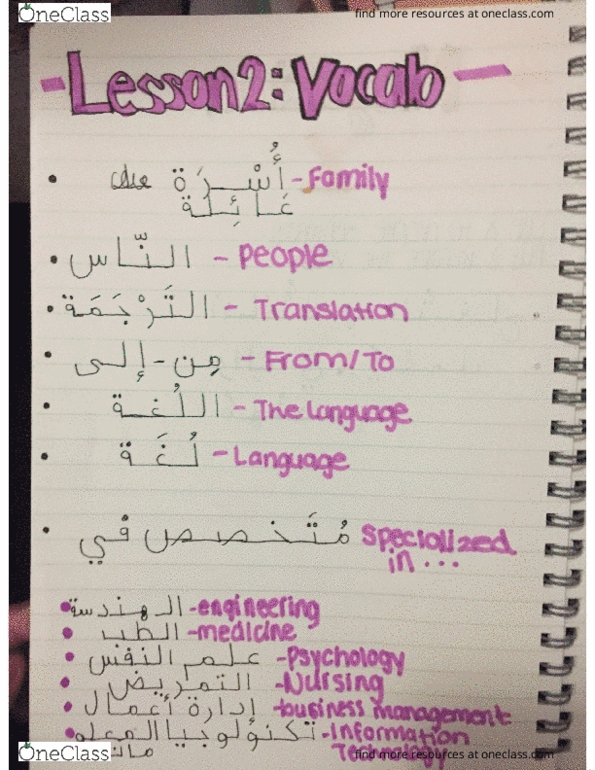 OneClass
find more resources at oneclass.com
- Lesson 2: Vocab -
• أُسْرَة - Family
عَائِلة
• النّاس - people
• التَرْجَمَة - Translation
• مِن - إلى - From/To
• اللُغة - The language
• لُغَة - Language
• مُتَخصص في specialized
in...
• الهندسة - engineering
• الطب - medicine
• علم النفس - Psychology
• التمريض - Nursing
• إدارة أعمال - business management
• تكنولوجيا المعلو - Information
مات Technology
OneClass
find more resources at oneclass.com